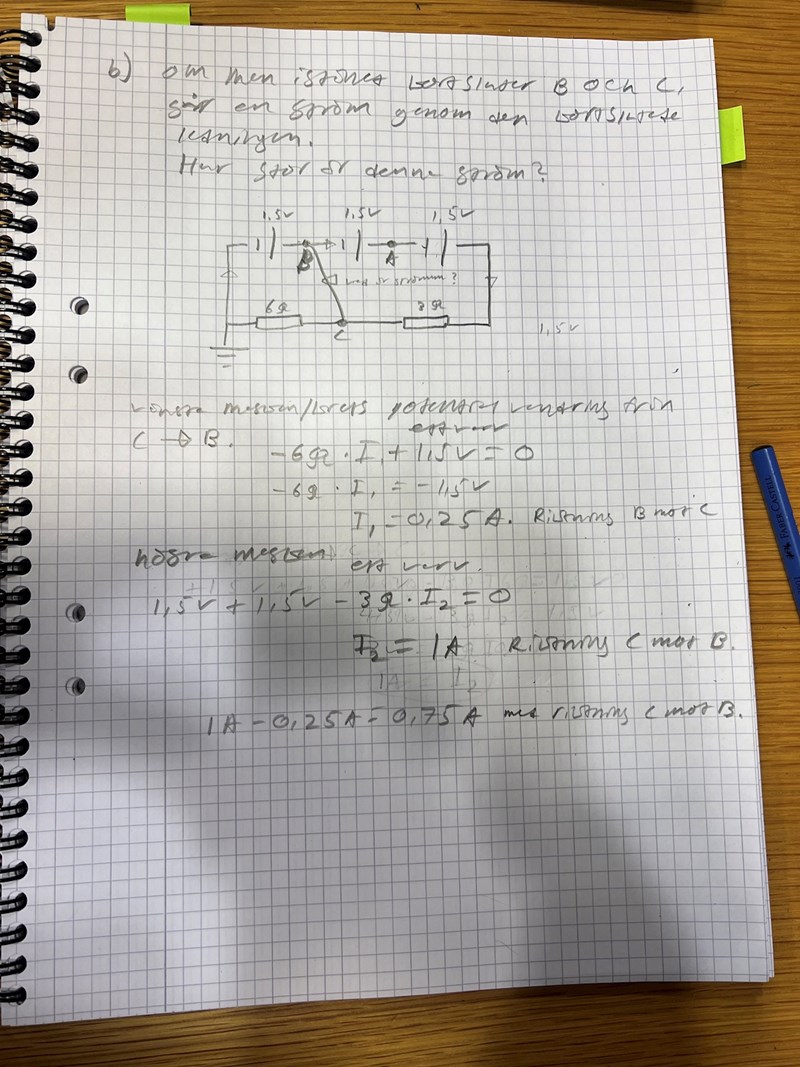 b) om men istället kortsluter B och C,
går en ström genom den kortslutna
ledningen.
Hur stor är denna ström?
1,5V 1,5V 1,5V
B A
vad är strömmen?
6Ω
C
1,5V
vänstra maskan/krets potential vandring från
C → B. ett varv
-6Ω · I₁ + 1,5V = 0
-6Ω · I₁ = -1,5V
I₁ = 0,25A. Riktning B mot C
högra maskan ett varv.
1,5V + 1,5V - 3Ω · I₂ = 0
I₂ = 1A Riktning C mot B.
1A I₂
1A - 0,25A = 0,75A med riktning C mot B.
FABER-CASTELL